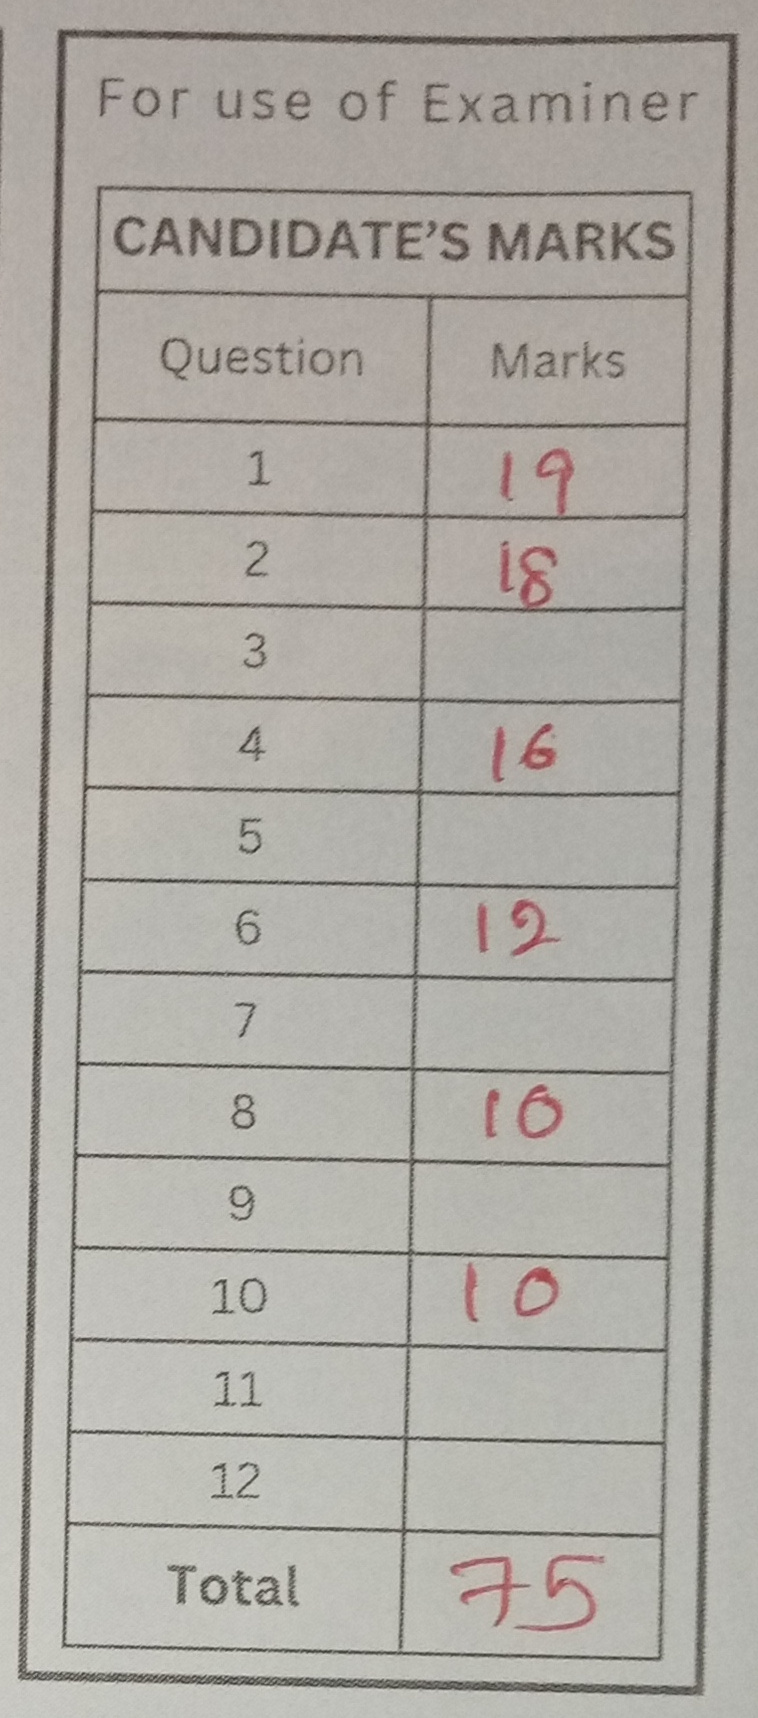 For use of Examiner
CANDIDATE'S MARKS
Question Marks
1 19
2 18
3
4 16
5
6 12
7
8 10
9
10 10
11
12
Total 75